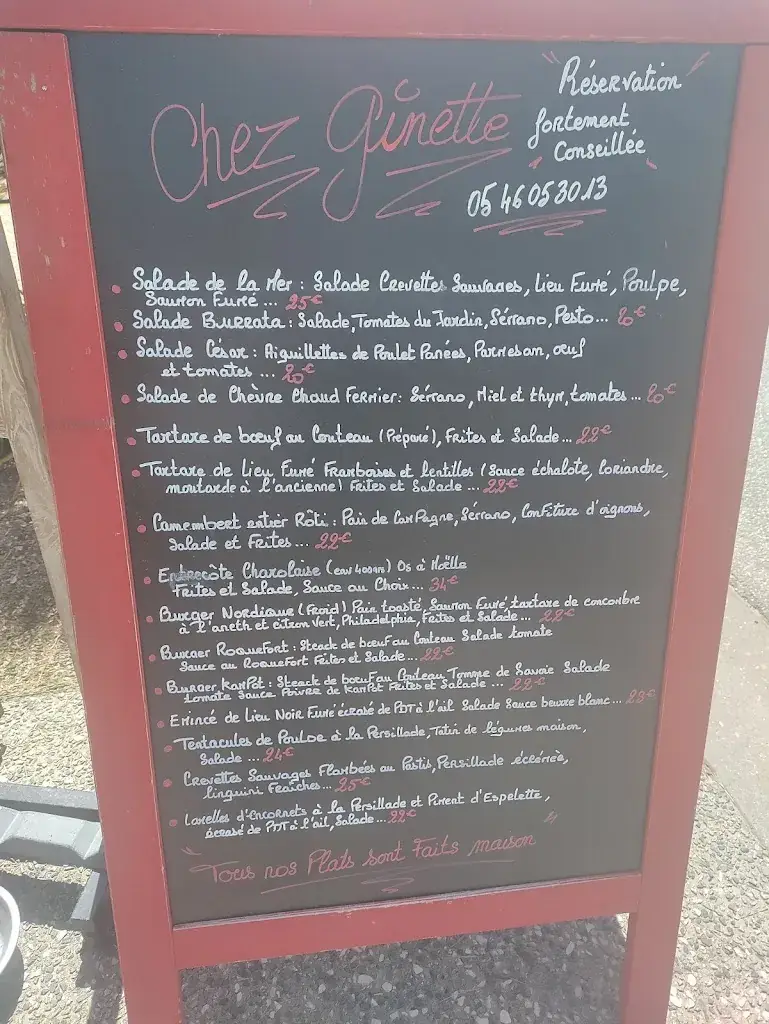 Chez Ginette
"Réservation"
fortement
Conseillée
05 46 05 30 13
Salade de la Mer : Salade Crevettes Sauvages, Lieu Fumé, Poulpe,
Saumon Fumé ... 25€
Salade Burrata : Salade, Tomates du Jardin, Sérrano, Pesto ... 20€
Salade César : Aiguillettes de Poulet Panées, Parmesan, œuf
et tomates ... 20€
Salade de Chèvre Chaud Fermier : Sérrano, Miel et thym, tomates ... 20€
Tartare de bœuf au Couteau (Préparé), Frites et Salade ... 22€
Tartare de Lieu Fumé Framboises et lentilles (Sauce échalote, Coriandre,
moutarde à l'ancienne) Frites et Salade ... 22€
Camembert entier Rôti : Pain de Campagne, Sérrano, Confiture d'oignons,
Salade et Frites ... 22€
Entrecôte Charolaise (env 400grs) Os à Moëlle
Frites et Salade, Sauce au Choix ... 34€
Burger Nordique (Froid) Pain toasté, Saumon Fumé, tartare de concombre
à l'aneth et citron vert, Philadelphia, Frites et Salade ... 22€
Burger Roquefort : Steack de bœuf au Couteau Salade tomate
Sauce au Roquefort Frites et Salade ... 22€
Burger Kampot : Steack de bœuf au Couteau Tomme de Savoie Salade
tomate Sauce Poivre de Kampot Frites et Salade ... 22€
Emincé de Lieu Noir Fumé écrasé de PDT à l'ail Salade Sauce beurre blanc ...
Tentacules de Poulpe à la Persillade, Tatin de légumes maison,
Salade ... 24€
Crevettes Sauvages Flambées au Pastis, Persillade
linguini Fraîches ... 25€
Lamelles d'Encornets à la Persillade et Piment d'Espelette,
écrasé de PDT à l'ail, Salade ... 22€
"Tous nos Plats sont Faits maison"